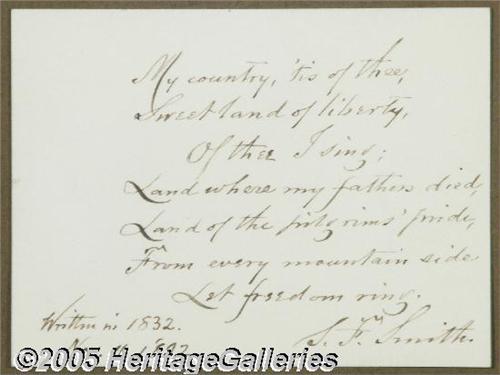 My country, 'tis of thee,
Sweet land of liberty,
Of thee I sing;
Land where my fathers died,
Land of the pilgrims' pride,
From every mountain side
Let freedom ring.
Written in 1832.
S. F. Smith.
©2005 HeritageGalleries